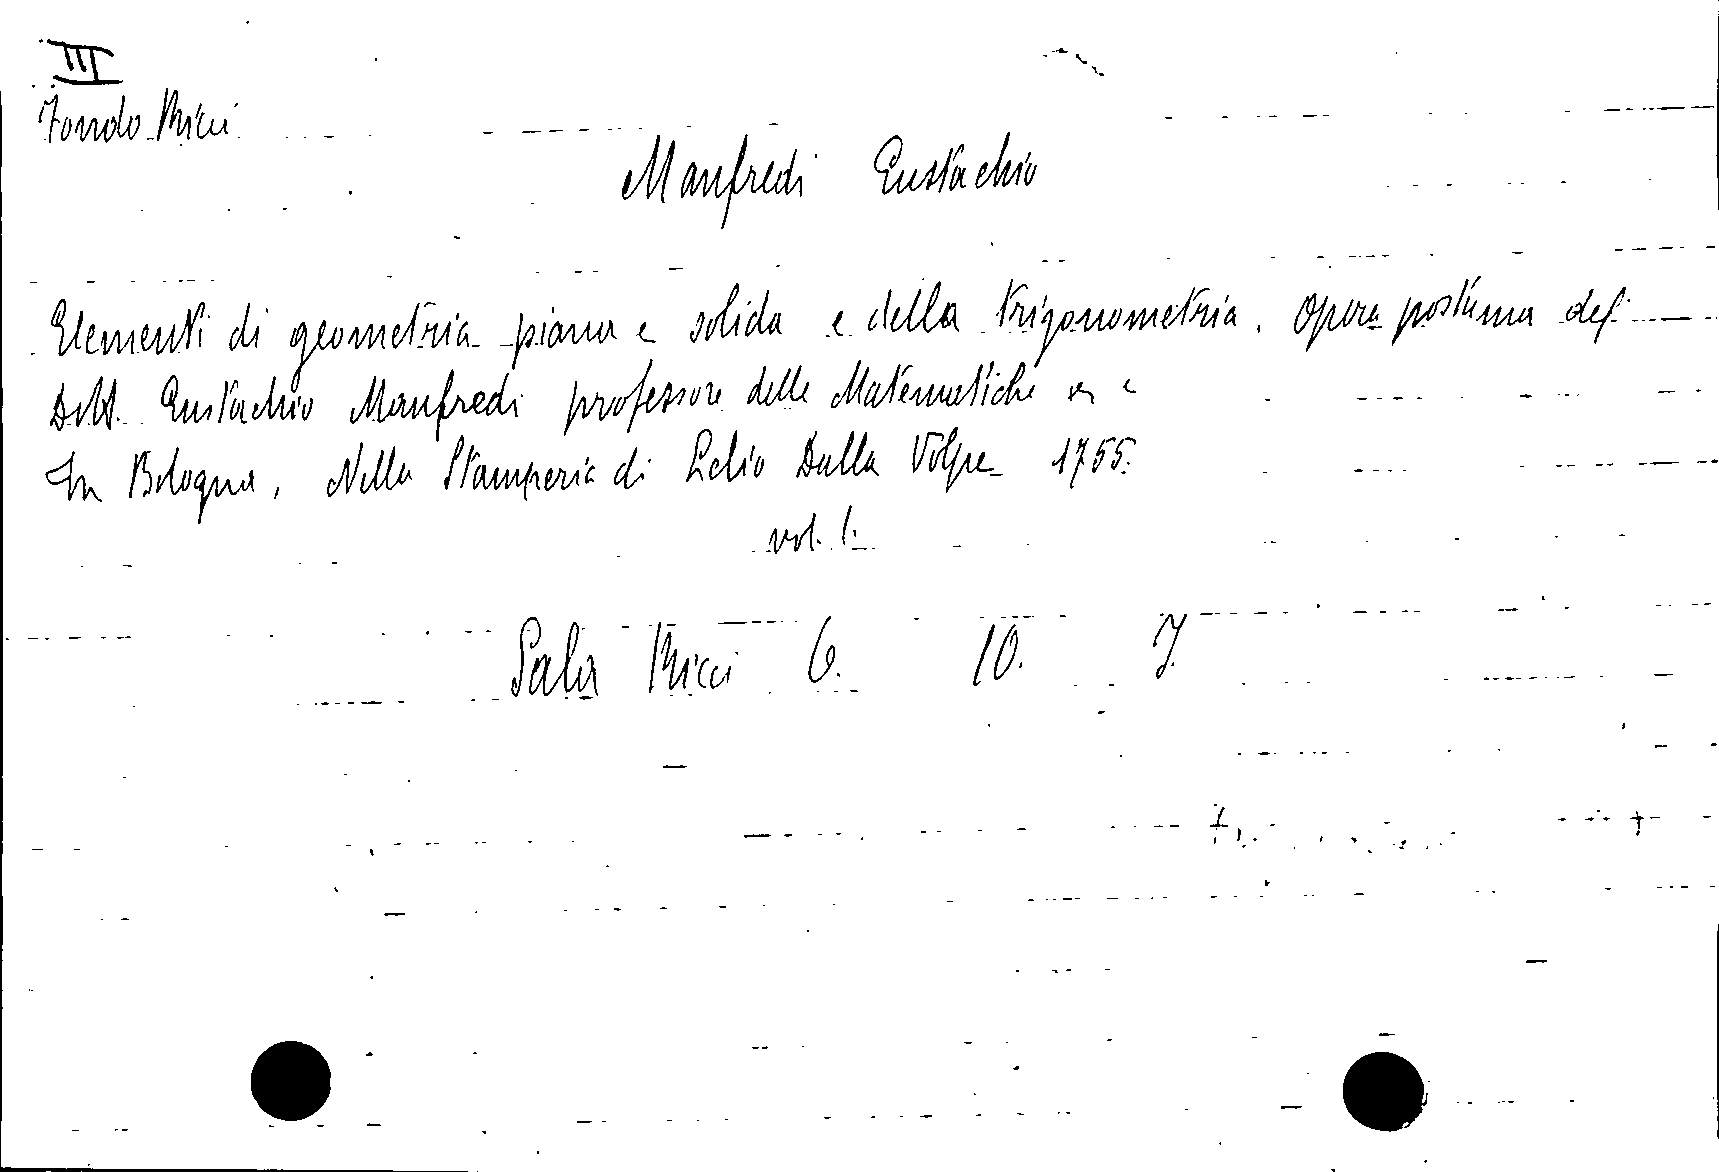 III
Fondo Ricci
Manfredi Eustachio
Elementi di geometria piana e solida e della trigonometria. Opera postuma del
Dott. Eustachio Manfredi professore delle Matematiche
In Bologna, Nella Stamperia di Lelio Dalla Volpe 1755.
vol. 1.
Sala Ricci 6. 10. 7.